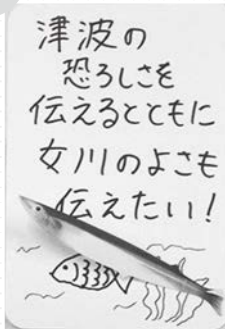 津波の
恐ろしさを
伝えるとともに
女川のよさも
伝えたい!